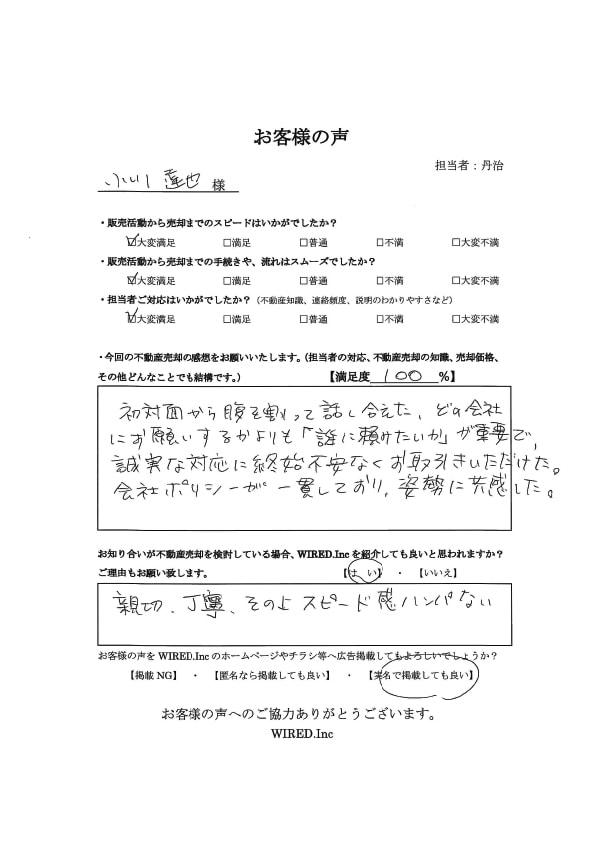 お客様の声
担当者：丹治
小川 達也 様
・販売活動から売却までのスピードはいかがでしたか？
☑大変満足 □満足 □普通 □不満 □大変不満
・販売活動から売却までの手続きや、流れはスムーズでしたか？
☑大変満足 □満足 □普通 □不満 □大変不満
・担当者ご対応はいかがでしたか？（不動産知識、連絡頻度、説明のわかりやすさなど）
☑大変満足 □満足 □普通 □不満 □大変不満
・今回の不動産売却の感想をお願いいたします。（担当者の対応、不動産売却の知識、売却価格、
その他どんなことでも結構です。） 【満足度 100 %】
初対面から腹を割って話し合えた、どの会社
にお願いするかよりも「誰に頼みたいか」が重要で、
誠実な対応に終始不安なくお取引きいただけた。
会社ポリシーが一貫しており、姿勢に共感した。
お知り合いが不動産売却を検討している場合、WIRED.Inc を紹介しても良いと思われますか？
ご理由もお願い致します。 【はい】 ・ 【いいえ】
親切、丁寧、その上スピード感ハンパない
お客様の声を WIRED.Inc のホームページやチラシ等へ広告掲載してもよろしいでしょうか？
【掲載 NG】 ・ 【匿名なら掲載しても良い】 ・ 【実名で掲載しても良い】
お客様の声へのご協力ありがとうございます。
WIRED.Inc